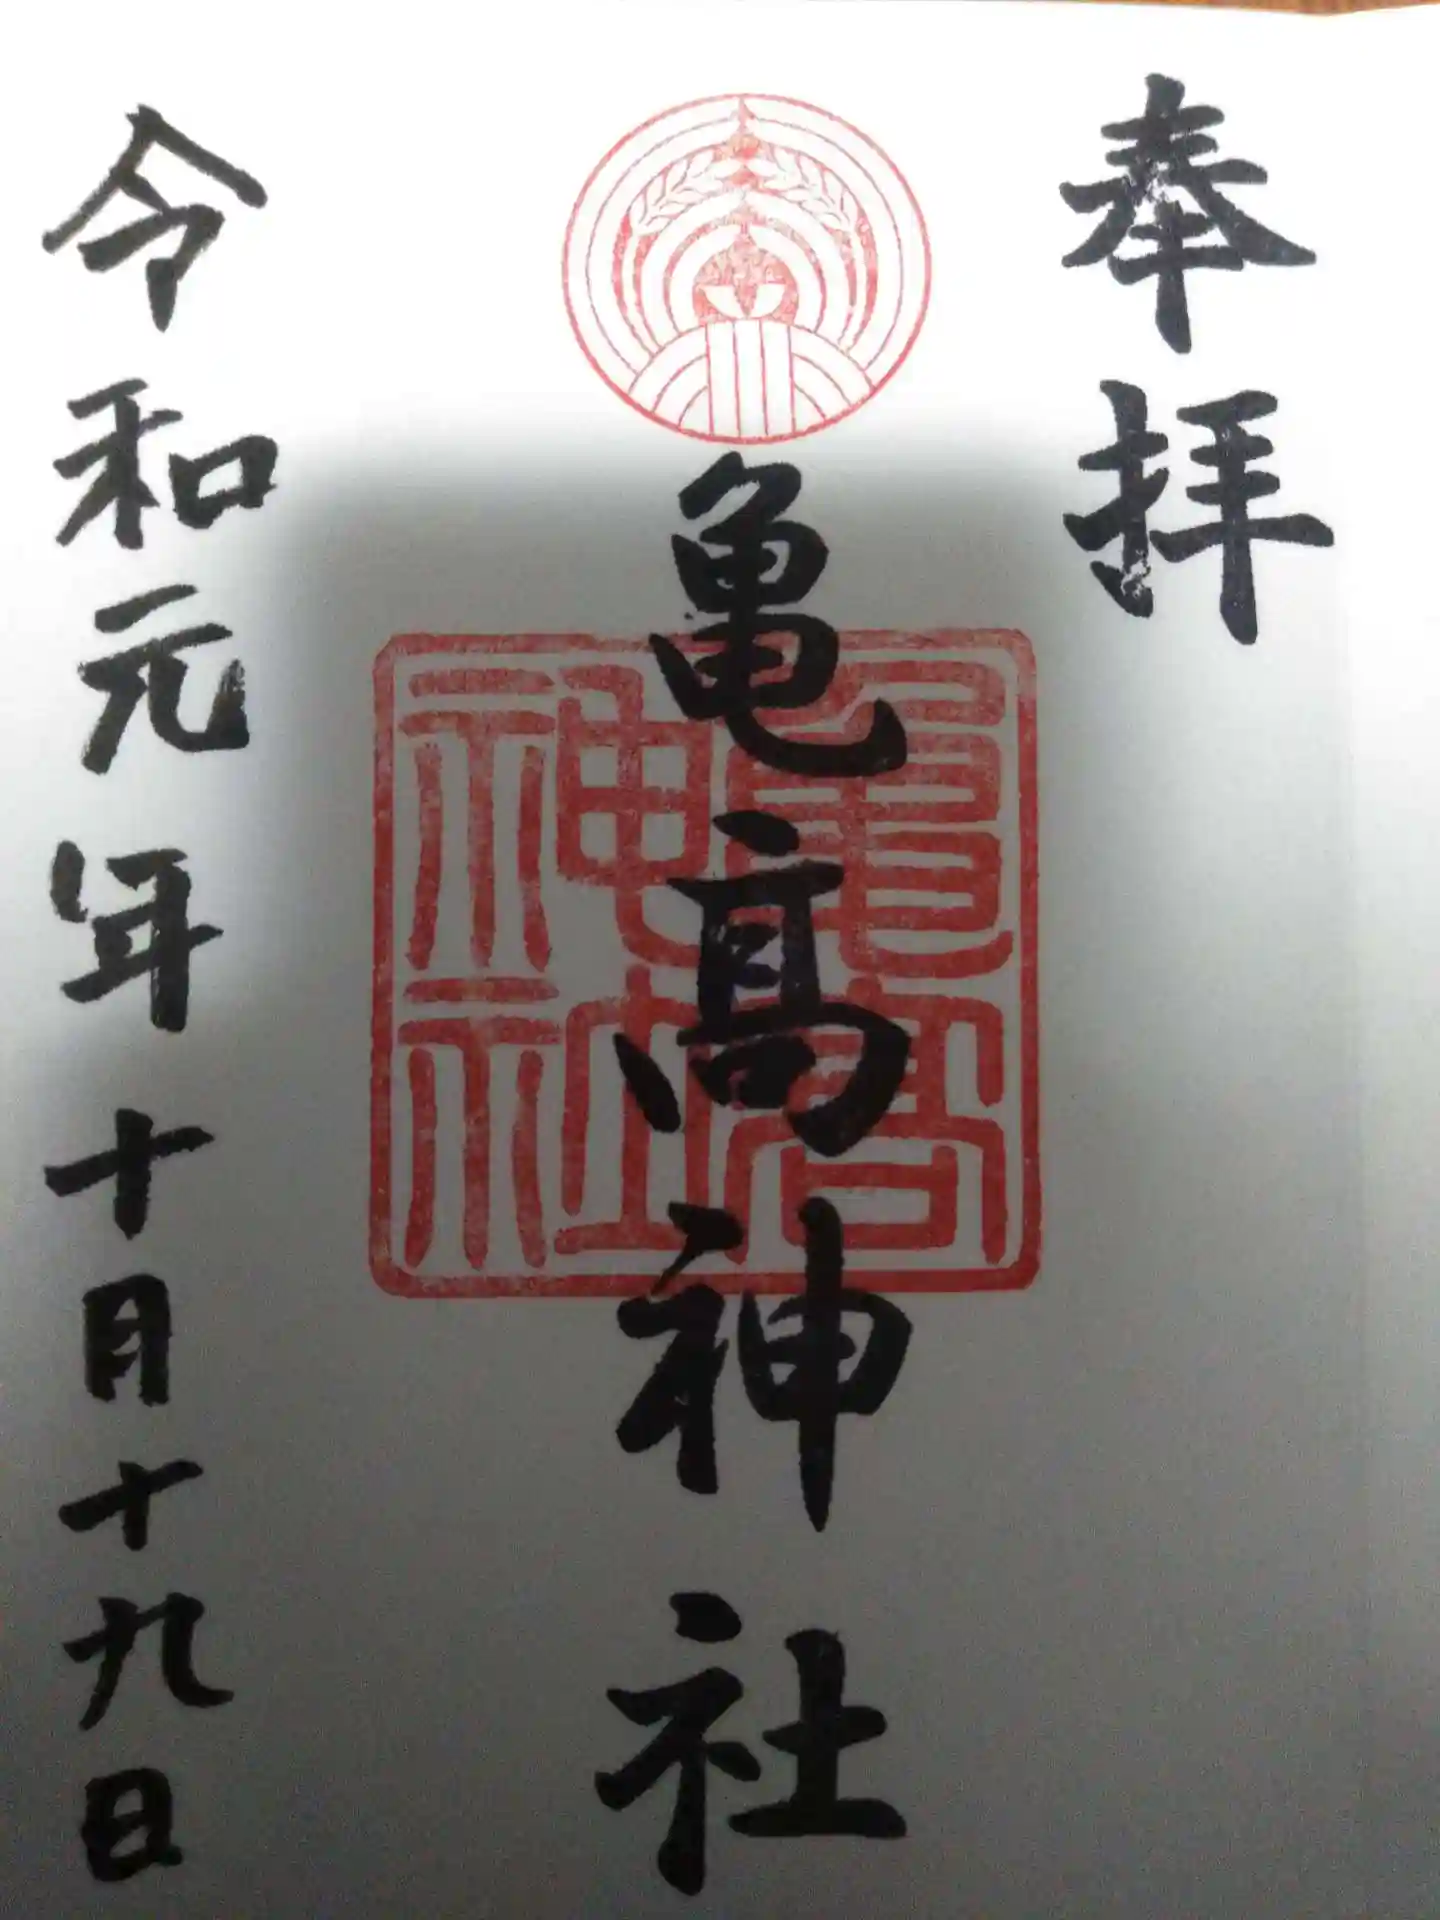 奉拝
亀高神社
亀高神社
令和元年十月十九日